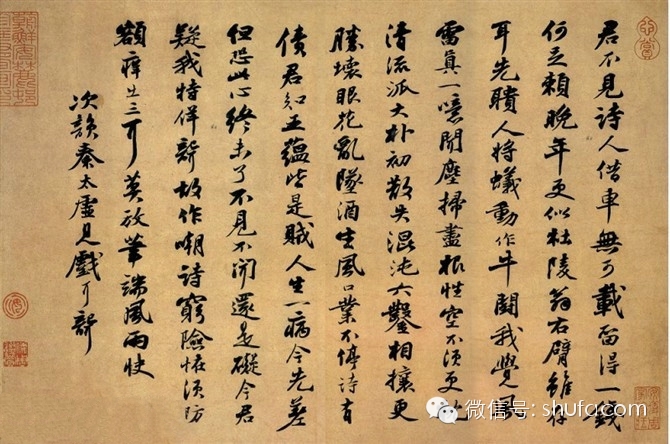 君不見詩人借車無可載留得一錢
何足賴晚年更似杜陵翁右臂雖存
耳先聵人將蟻動作牛鬪我覺風
雷真一噫聞塵掃盡根性空不須更枕
清流派大朴初散失混沌六鑿相攘更
勝壞眼花亂墜酒生風口業不停詩有
債君知五蘊皆是賊人生一病今先差
但恐此心終未了不見不聞還是礙今君
疑我特佯聾故作嘲詩窮險怪須防
額癢出三耳莫放筆端風雨快
次韻秦太虛見戲耳聾
微信号: shufa.com